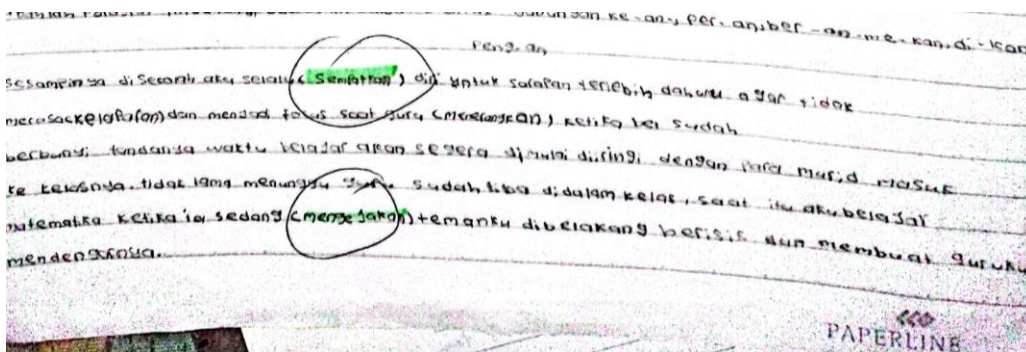 gabungan ke-an, per-an, ber-an-me-kan, di-kan
peng-an
sesampinya disecorah aku selalu (sematkan) diri untuk sarapan terlebih dahulu agar tidak
merasa (kelaparan) dan menjadi fokus saat guru (menerangkan) ketika bel sudah
berbunyi tandanya waktu belajar akan segera dimulai diiringi dengan para murid masuk
ke kelasnya. tidak lama menunggu guru sudah tiba didalam kelas, saat itu aku belajar
matematika ketika ia sedang (mengejakan) temanku dibelakang berisik dan membuat guruku
mendengarnya.
PAPERLINE